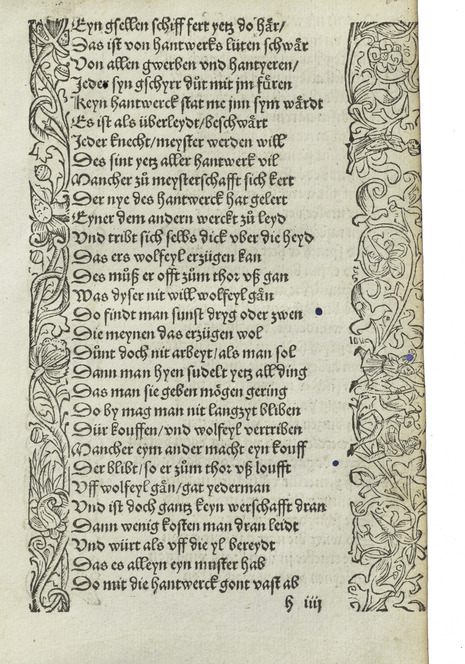 Eyn gsellen schiff fert yetz do hår/
Das ist von hantwercks lüten schwår
Von allen gwerben vnd hantyeren/
Jeder syn gschyrr důt mit jm fůren
Keyn hantwerck stat me jnn sym wårdt
Es ist als überleydt/beschwårt
Jeder knecht/meyster werden will
Des sint yetz aller hantwerk vil
Mancher zů meysterschafft sich kert
Der nye des hantwerck hat gelert
Eyner dem andern werckt zů leyd
Vnd tribt sich selbs dick vber die heyd
Das ers wolfeyl erzügen kan
Des můß er offt zům thor vß gan
Was dyser nit will wolfeyl gån
Do findt man sunst dryg oder zwen
Die meynen das erzügen wol
Důnt doch nit arbeyt/als man sol
Dann man hyen sudelt yetz all ding
Das man sie geben mögen gering
Do by mag man nit langzyt bliben
Dür kouffen/vnd wolfeyl vertriben
Mancher eym ander macht eyn kouff
Der blibt/so er zům thor vß loufft
Vff wolfeyl gån/gat yederman
Vnd ist doch gantz keyn werschafft dran
Dann wenig kosten man dran leidt
Vnd würt als vff die yl bereydt
Das es alleyn eyn muster hab
Do mit die hantwerck gont vast ab
h iiij